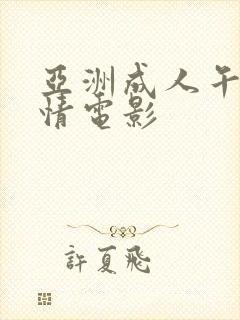 亞洲成人午
情電影
許夏飛